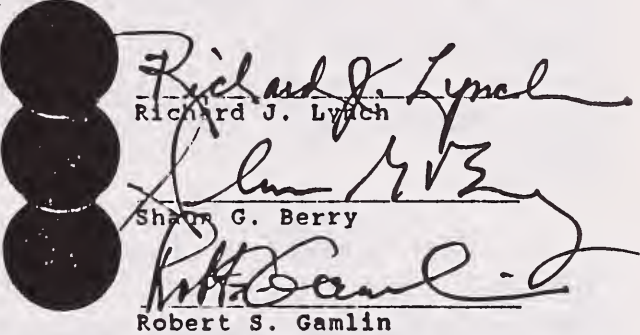 Richard J. Lynch
Richard J. Lynch
Shaun G. Berry
Robert S. Gamlin